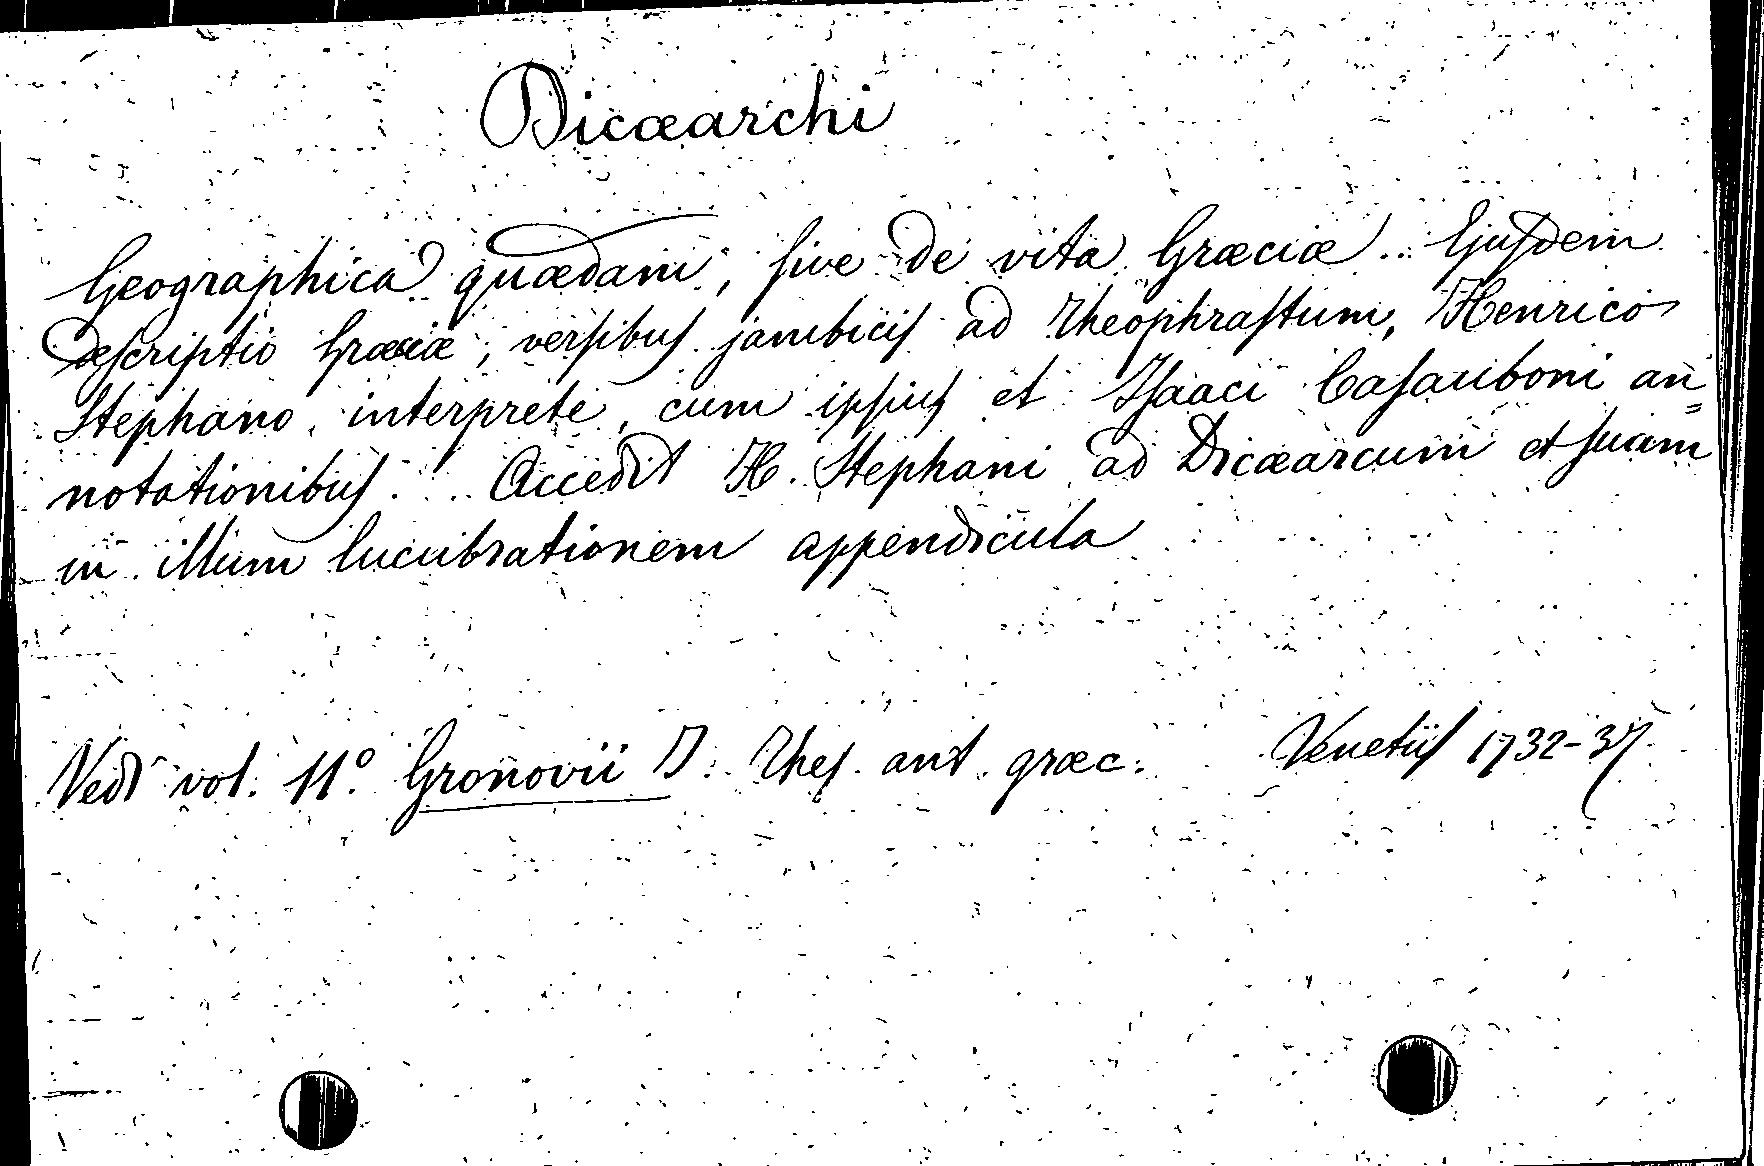 Dicæarchi
Geographica quædam, sive de vita Græciæ. Ejusdem
descriptio Græciæ, versibus jambicis ad Theophrastum, Henrico
Stephano interprete, cum ipsius et Isaaci Casauboni an=
notationibus. Accedit H. Stephani ad Dicæarcum et suam
in illum lucubrationem appendicula
Vedi vol. 11º Gronovii J. Thes. ant. græc. Venetiis 1732-37